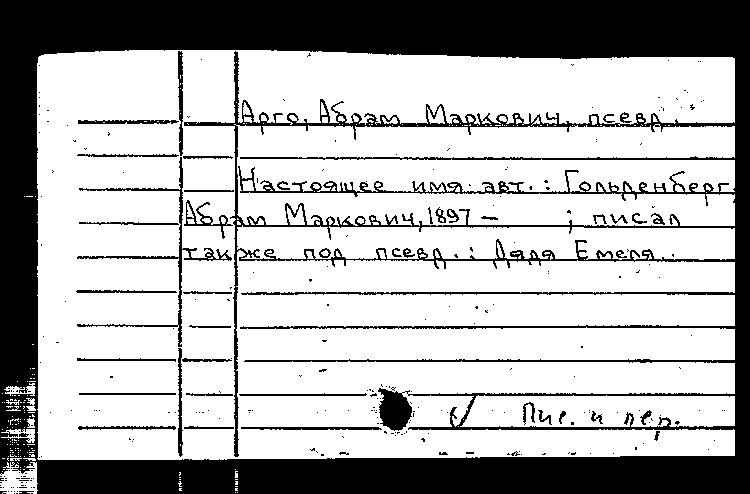 Арго, Абрам Маркович, псевд.
Настоящее имя авт.: Гольденберг,
Абрам Маркович, 1897 – ; писал
также под псевд.: Дядя Емеля.
√ Пис. и пер.